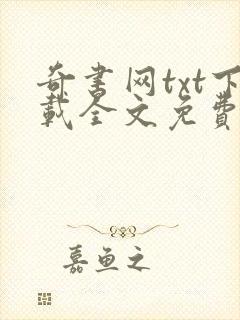 奇书网txt下
载全文免費
嘉鱼之